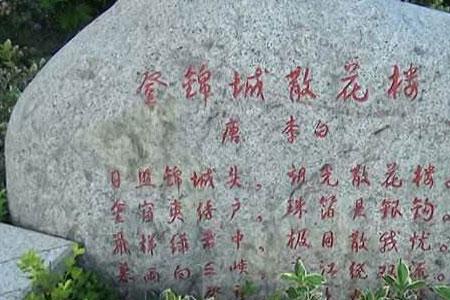 登錦城散花楼
唐 李白
日照錦城头。朝光散花楼。
金窗夾绣户，珠箔悬銀钩。
飛梯绿云中，极目散我忧。
暮雨向三峡，春江绕双流。